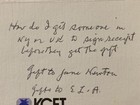 How do I get someone in
NY or UK to sign receipt
before they get the gift
Gift to Jane Newton
Gift to S.L.A.
KCET